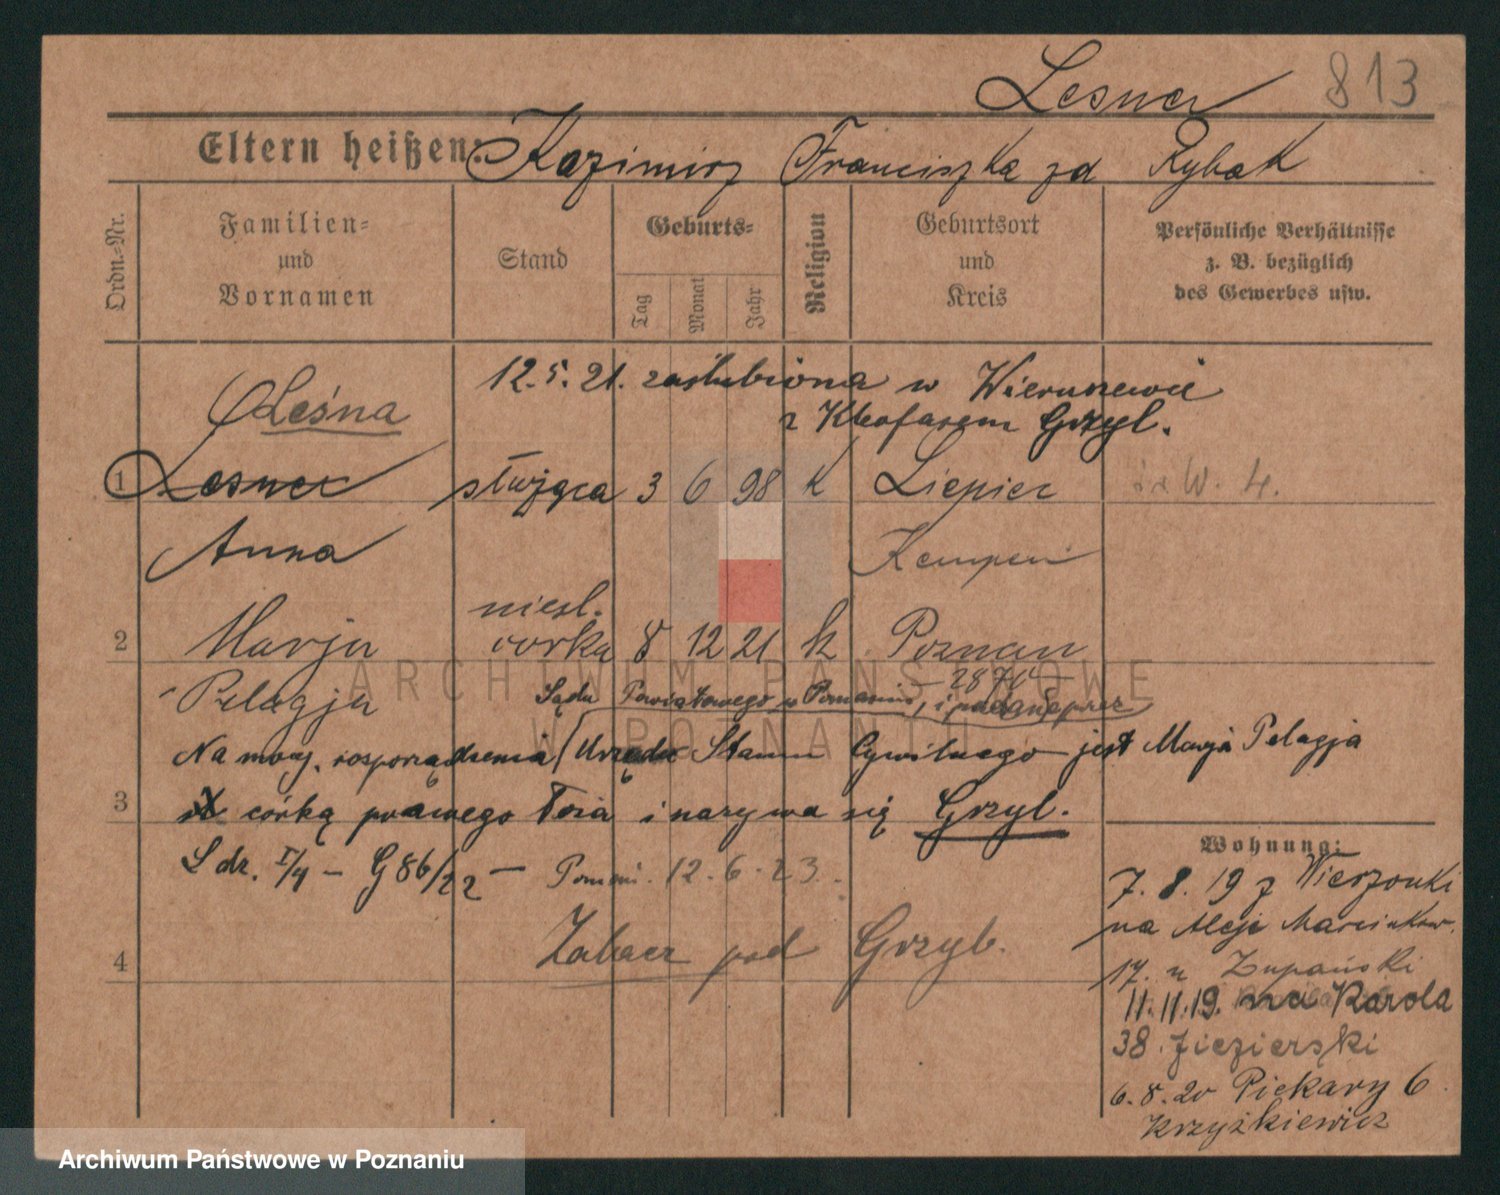 Lesner 813
Eltern heißen: Kazimirz Franciszka zd Rybak
Ordn.=Nr.
Familien=
und
Vornamen
Stand
Geburts=
Tag
Monat
Jahr
Religion
Geburtsort
und
Kreis
Persönliche Verhältnisse
z. B. bezüglich
des Gewerbes usw.
12.5.21. zaślubiona w Wieruszewie
z Kleofasem Grzyl.
Leśna
1 Lesner służąca 3 6 98 K Liepiec W. 4.
Anna Kempen
nieśl.
2 Marja córka 8 12 21 k Poznan
Pelagja
28 70
Sądu Powiatowego w Poznaniu, i podanie przez
Na mocy rosporządzenia Urzędu Stanu Cywilnego jest Marja Pelagja
3 córką prawego łoża i nazywa się Grzyl.
L dz. I/4 – G 86/22 – Poznań. 12.6.23.
4 Zobacz pod Grzyb.
Wohnung:
7.8.19 z Wierzonki
na Aleje Marcinkow.
17. u Zupański
11.11.19. na Karola
38. Jiezierski
6.8.20 Piekary 6
Krzyżkiewicz
ARCHIWUM PAŃSTWOWE
W POZNANIU
Archiwum Państwowe w Poznaniu